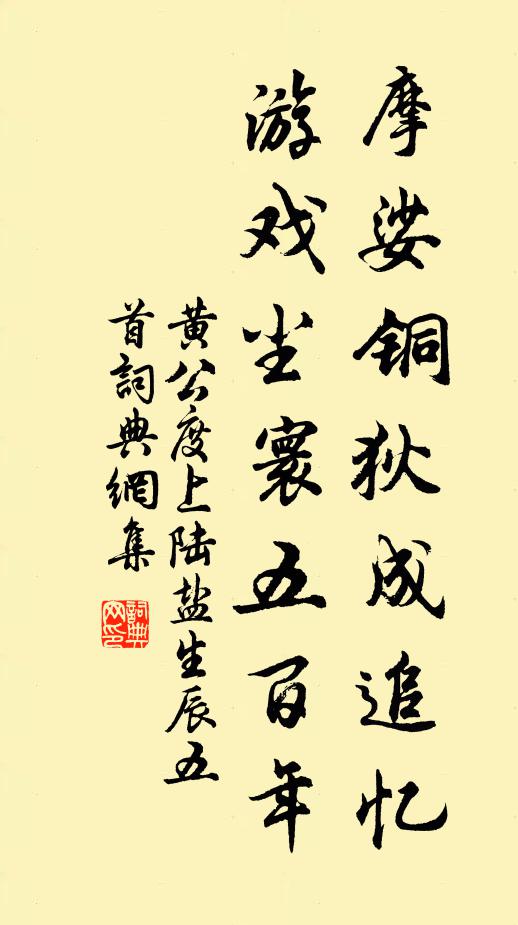 摩娑铜狄成追忆
游戏尘寰五百年
黄公度上陆盐生辰五
首詞典網集
詞典
网印